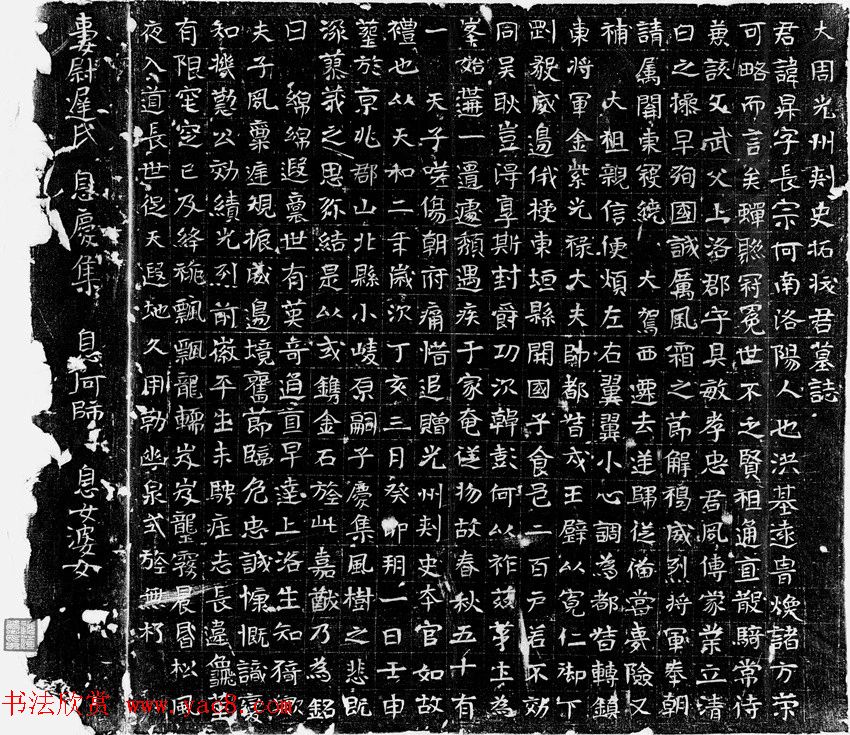 大周光州刾史拓拔君墓誌
君諱昇字長宗河南洛陽人也洪基遠胄煥諸方策
可略而言矣蟬聮冠冕世不乏賢祖通直散騎常侍
兼該文武父上洛郡守具敏孝忠君夙傳家業立清
白之操早殉國誠厲風霜之節解褐威烈將軍奉朝
請属關東稷統 大駕西遷去逆歸從備嘗夷險又
補 大祖親信便煩左右翼翼小心調為都督轉鎮
東將軍金紫光祿大夫帥都督戍王壁以寬仁御下
剛毅威邊俄授東垣縣開國子食邑二百戶若不効
同吴耿豈得享斯封爵功次韓彭何以祚茲茅土為
峯始遘一遺遽頹遇疾于家奄從物故春秋五十有
一 天子嗟傷朝府痛惜追贈光州刾史本官如故
禮也以天和二年歲次丁亥三月癸卯朔一日壬申
塟於京兆郡山北縣小崚原嗣子慶集風樹之悲既
深蓼莪之思弥結是以式鐫金石旌此嘉猷乃為銘
曰 綿綿遐裏世有英奇通直早達上洛生知猗歟
夫子風稟達規振威邊境奮節臨危忠誠慷慨識變
知機勲公効績光烈前徽平生未騁壯志長違龜筮
有限窀穸已及絳旐飄飄龍轜岌岌壟霧晨昏松風
夜入道長世促天遐地久用勒幽泉式旌無朽
妻尉遲氏 息慶集 息阿師 息女婆女
书法欣赏 www.yac8.com